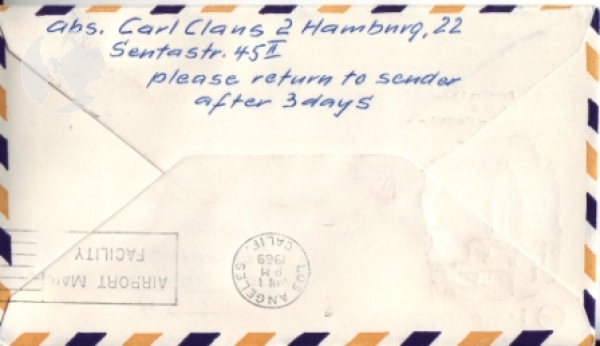 abs. Carl Claus 2 Hamburg, 22
Sentastr. 45 II
please return to sender
after 3 days
AIRPORT MAIL
FACILITY
LOS ANGELES
CALIF.
1
PM
1969